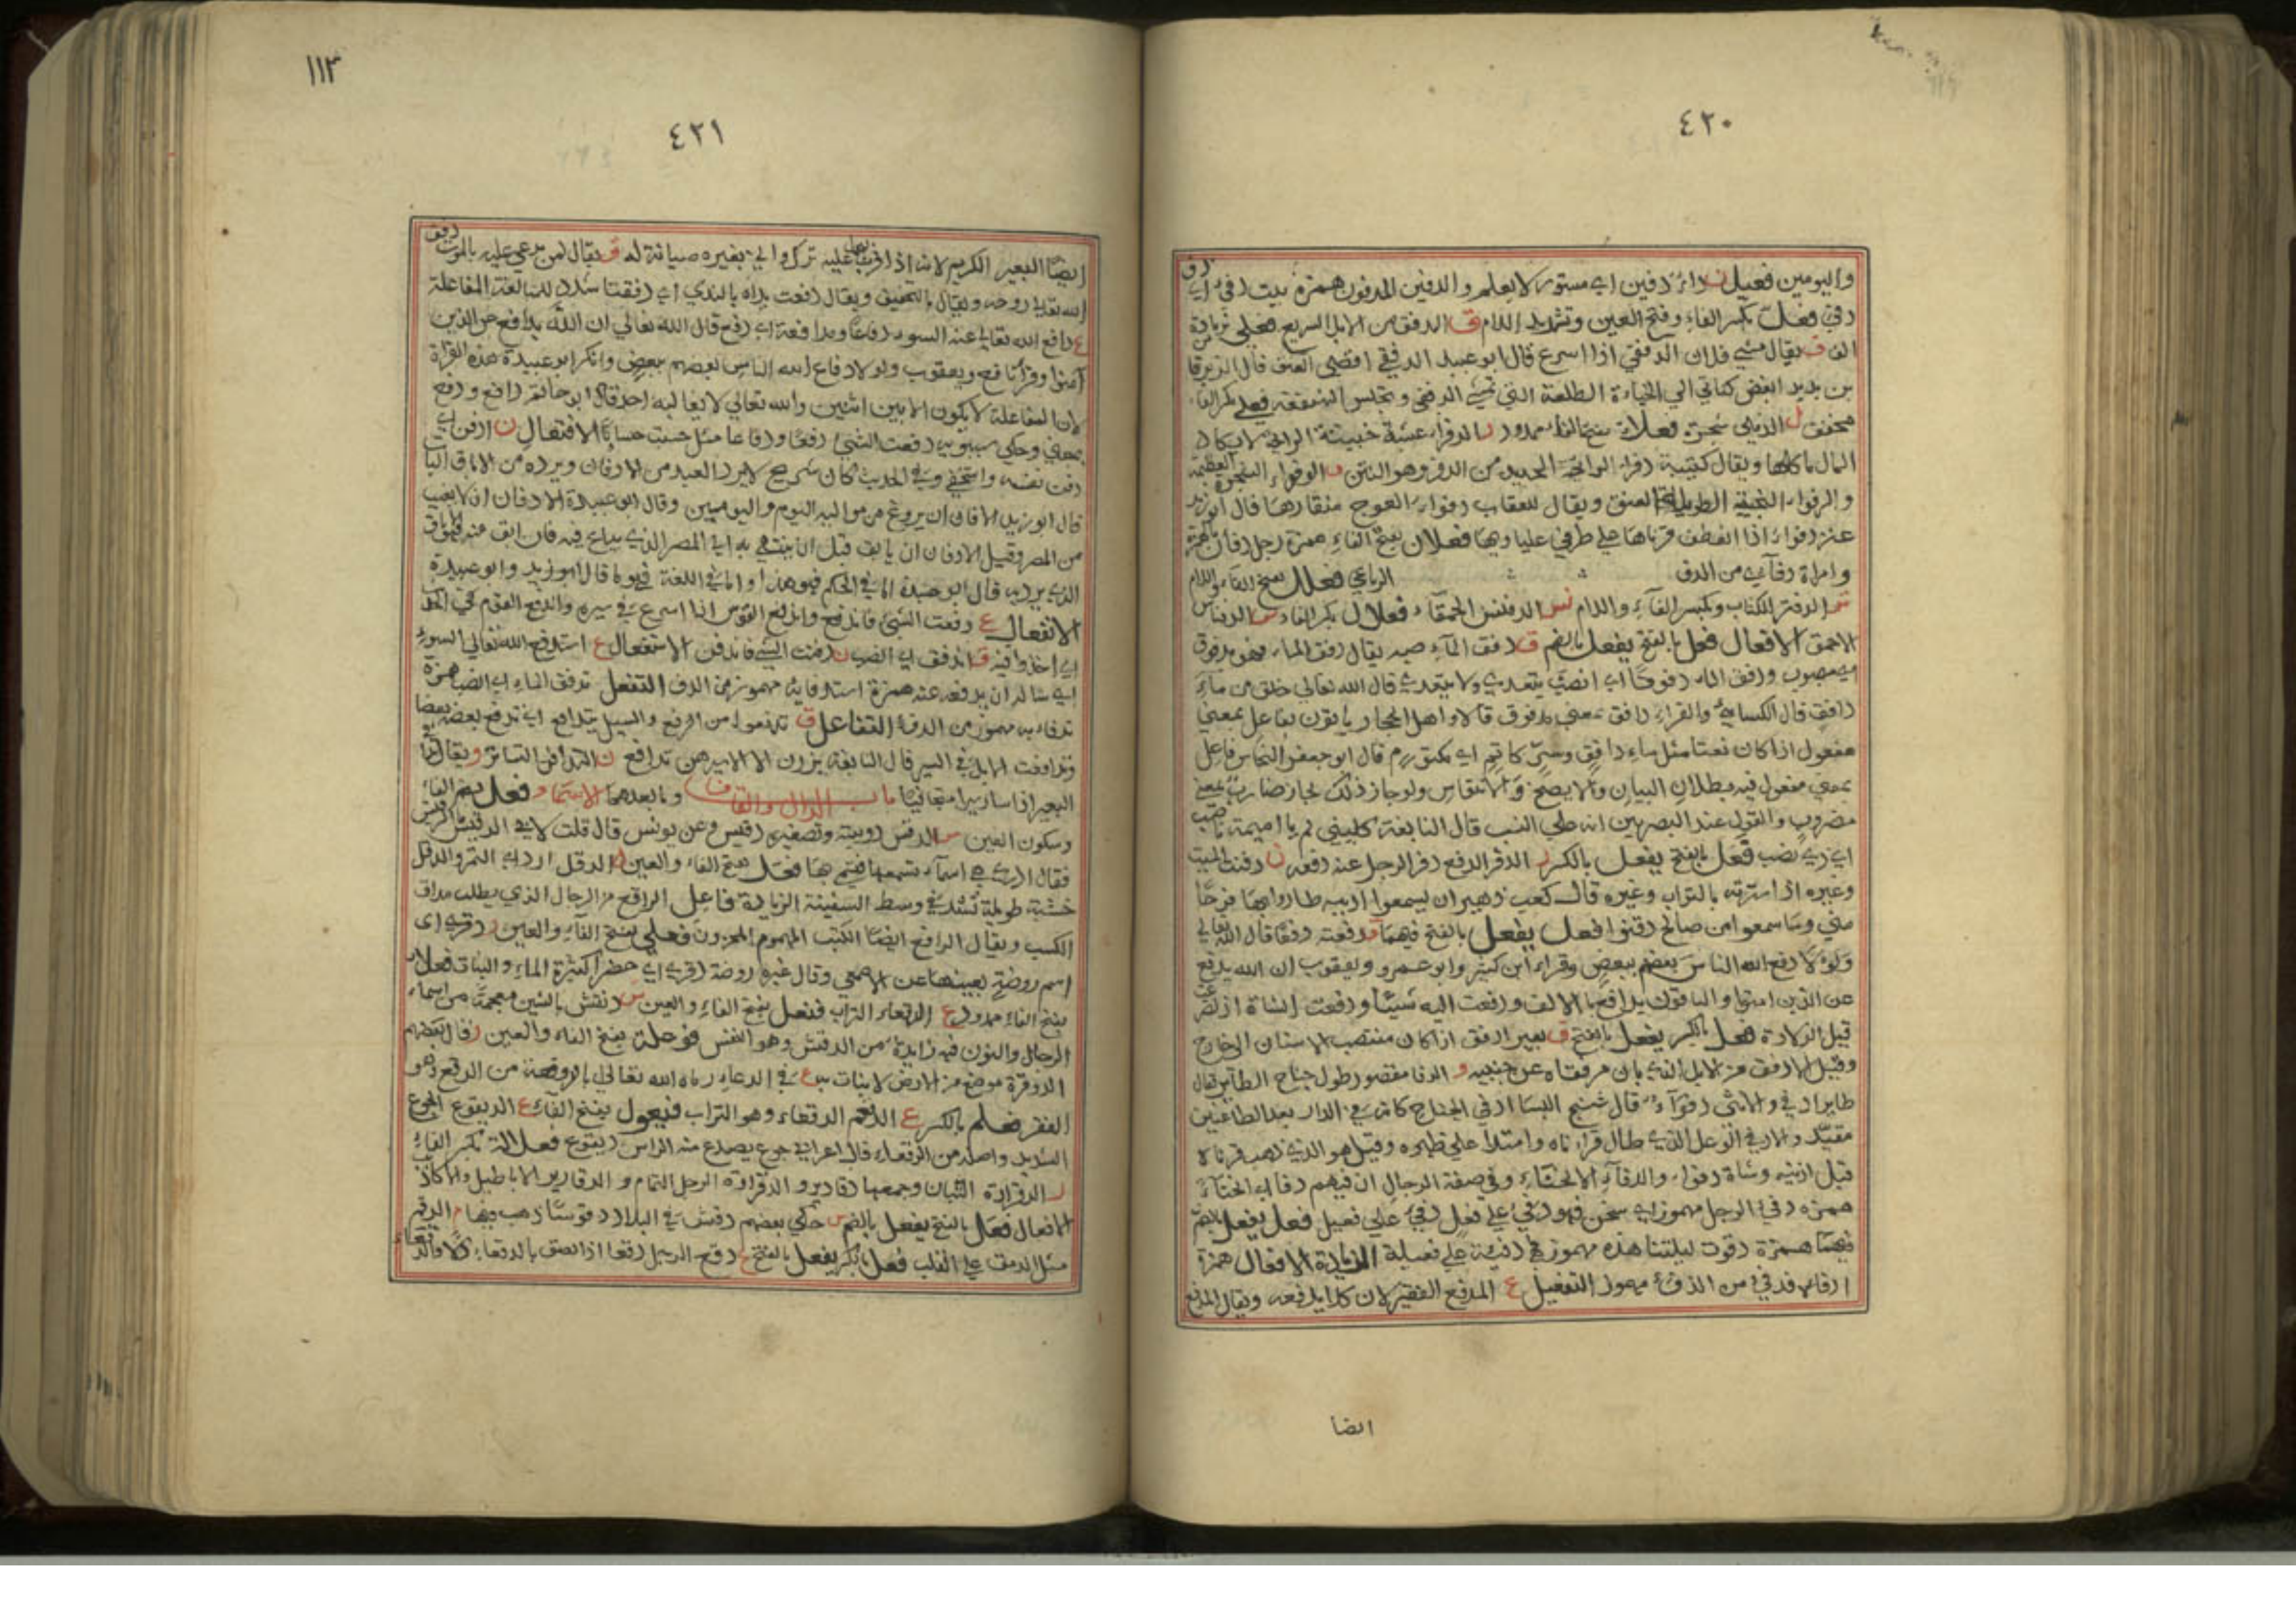 ٤٢٠
دف
واليومين فعيل ن داء دفين اي مستور لا يعلم والدفين المدفون همزة بيت دفئ اي
دفئ فعل بكسر الفاء وفتح العين وتشديد اللام ق الدفق من الابل السريع فعلى بزيادة
الف ق يقال مشي فلان الدفقى اذا اسرع قال ابو عبيد الدفقى اقصى العنق قال الزبرقان
بن بدر ابغض كنائني الي الخباءة الطلعة التي تمشي الدفقى وتجلس الهبنقعة فعلى بكسر الفاء
مخفف ل الدفلى شجرة فعلاء بفتح الفاء ممدود ر الدفراء عشبة خبيثة الرائحة لا يكاد
المال ياكلها ويقال كتيبة دفراء لرائحة الحديد من الدفر وهو النتن و الدفواء الشجرة العظيمة
والدفواء النجيبة الطويلة العنق ويقال للعقاب دفواء لعوج منقارها قال ابو زيد
عنز دفواء اذا انعطف قرناها على طرفي علباويها فعلان بفتح الفاء همزة رجل دفآن
وامراة دفآى من الدفء الرباعي فعلل بفتح الفاء واللام
تر الدفتر الكتاب وبكسر الفاء واللام نس الدفنس الحمقاء فعلال بكسر الفاء س الدفناس
الاحمق الافعال فعل بالفتح يفعل بالضم ق دفق الماء صبه يقال دفق الماء فهو مدفوق
اي مصبوب ودفق الماء دفوقا اي انصب يتعدى ولا يتعدى قال الله تعالى خلق من ماء
دافق قال الكسائي والفراء دافق بمعنى مدفوق قالا واهل الحجاز ياتون بفاعل بمعنى
مفعول اذا كان نعتا مثل ماء دافق وسر كاتم اي مكتوم قال ابو جعفر النحاس فاعل
بمعنى مفعول فيه بطلان البيان ولا يصح ولا ينقاس ولو جاز ذلك لجاز ضارب بمعنى
مضروب والقول عند البصريين انه على النسب قال النابغة كليني لهم يا اميمة ناصب
اي ذي نصب فعل بالفتح يفعل بالكسر ر الدفر الدفع دفر الرجل عنه دفعه ن دفنت الميت
وغيره اذا سترته بالتراب وغيره قال كعب بن زهير ان يسمعوا ريبة طاروا بها فرحا
مني وما سمعوا من صالح دفنوا فعل يفعل بالفتح فيهما ع دفعته دفعا قال الله تعالى
ولولا دفع الله الناس بعضهم ببعض وقراء ابن كثير وابو عمرو ويعقوب ان الله يدفع
عن الذين امنوا والباقون يدافع بالالف ودفعت اليه شيئا ودفعت الشاة اذا اضرعت
قبيل الولادة فعل بالكسر يفعل بالفتح ق بعير ادفق اذا كان منتصب الاسنان الى خارج
وقيل الادفق من الابل الذي بان مرفقاه عن جنبيه و الدفا مقصور طول جناح الطاير يقال
طاير ادفى والانثى دفواء قال شنج النسا ادفى الجناح كانه في الدار بعد الظاعنين
مقيد والادفى الوعل الذي طال قرناه وامتدا على ظهره وقيل هو الذي ذهب قرناه
قبل اذنيه وشاة دفواء والدفاء الانحناء وفي صفة الرجال ان فيهم دفا اي انحناء
همزة دفئ الرجل مهموز اي سخن فهو دفئ على فعل ودفيء على فعيل فعل يفعل بالضم
فيهما همزة دفوت ليلتنا هذه مهموز فهي دفيئة على فعيلة الزيادة الافعال همزة
ادفاه فدفئ من الدفء مهموز التفعيل ع المدفع الفقير لان كلا يدفعه ويقال المدفع
ايضا
١١٣
٤٢١
دفق
ايضا البعير الكريم لانه اذا قرب ليحمل عليه ترك واتي بغيره صيانة له ق يقال لمن يدعى عليه بالموت
الله تعالى روحه ويقال بالتخفيف ويقال دفقت يداه بالندى اي دفقتا شدد للمبالغة المفاعلة
ع دافع الله تعالى عنه السوء دفاعا ومدافعة اي دفع قال الله تعالى ان الله يدافع عن الذين
آمنوا وقرا نافع ويعقوب ولولا دفاع الله الناس بعضهم ببعض وانكر ابو عبيدة هذه القراة
لان المفاعلة لا يكون الا بين اثنين والله تعالى لا يغالبه احد قال ابو حاتم دافع ودفع
بمعنى وحكى سيبويه دفعت الشيئ دفعا ودفاعا مثل حسبت حسابا الافتعال ن ادفن اي
دفن نفسه واستخفى وفي الحديث كان شريح لا يرد العبد من الادفان ويرده من الاباق البات
قال ابو زيد الادفان ان يروغ من مواليه اليوم واليومين وقال ابو عبيدة الادفان ان لا يغيب
من المصر وقيل الادفان ان يابق قبل ان ينتهى به الى المصر الذي يباع فيه فان ابق منه فهو الاباق
الذي يرد به قال ابو عبيدة اما في الحكم فهو هذا واما في اللغة فهو ما قال ابو زيد وابو عبيدة
الانفعال ع دفعت الشيئ فاندفع واندفع الفرس اذا اسرع في سيره واندفع القوم في الحديث
اي اخذوا فيه ق اندفق اي انصب ن دفنت الشيء فاندفن الاستفعال ع استدفع الله تعالى السوء
اي ساله ان يدفعه عنه همزة استدفا به مهموز من الدفء التفعل تدفق الماء اي انصب همزة
تدفا به مهموز من الدفء التفاعل ق تدفعوا من الدفع والسيل يتدافع اي يدفع بعضه بعضا
وتدافعت الابل في السير قال النابغة يزرن الالا سيرهن تدافع ن التدافن التساتر و يقال تدافى
البعير اذا سار سيرا متجافيا باب الدال والقاف وما بعدهما الاسماء فعل بضم الفاء
وسكون العين س الدقس دويبة وتصغيره دقيس وعن يونس قال قلت لابي الدقيش ما الدقيش
فقال لا ادري هي اسماء نسمعها فنتسمى بها فعل بفتح الفاء والعين ل الدقل اردا التمر والدقل
خشبة طويلة تشد في وسط السفينة الزيادة فاعل الداقع من الرجال الذي يطلب مداق
الكسب ويقال الداقع ايضا الكئيب المهموم المحزون فعلى بفتح الفاء والعين ر دقرى
اسم روضة بعينها عن الاصمعي وقال غيره روضة دقرى اي خضرا كثيرة الماء والنبات فعلاء
بفتح الفاء ممدود ع الدقعاء التراب فنعل بفتح الفاء والعين س دنقش بالشين معجمة من اسماء
الرجال والنون فيه زايدة من الدقش وهو النقش فوعلة بفتح الفاء والعين ر قال بعضهم
الدوقرة موضع من الارض لا نبات به ع في الدعاء رماه الله تعالى بالدوقعة من الدقع وهو
الفقر فعلم بالكسر ع الدقعم الدقعاء وهو التراب فيعول بفتح الفاء ع الديقوع الجوع
الشديد واصله من الدقعاء قال اعرابي جوع يصدع منه الراس ديقوع فعلالة بكسر الفاء
ر الدقرارة التبان وجمعها دقارير والدقرارة الرجل النمام والدقارير الاباطيل والاكاذيب
الافعال فعل بالفتح يفعل بالضم س حكى بعضهم دقس في البلاد دقوسا ذهب فيها م الدقم
مثل الدمق على القلب فعل بالكسر يفعل بالفتح ع دقع الرجل دقعا اذا لصق بالدقعاء